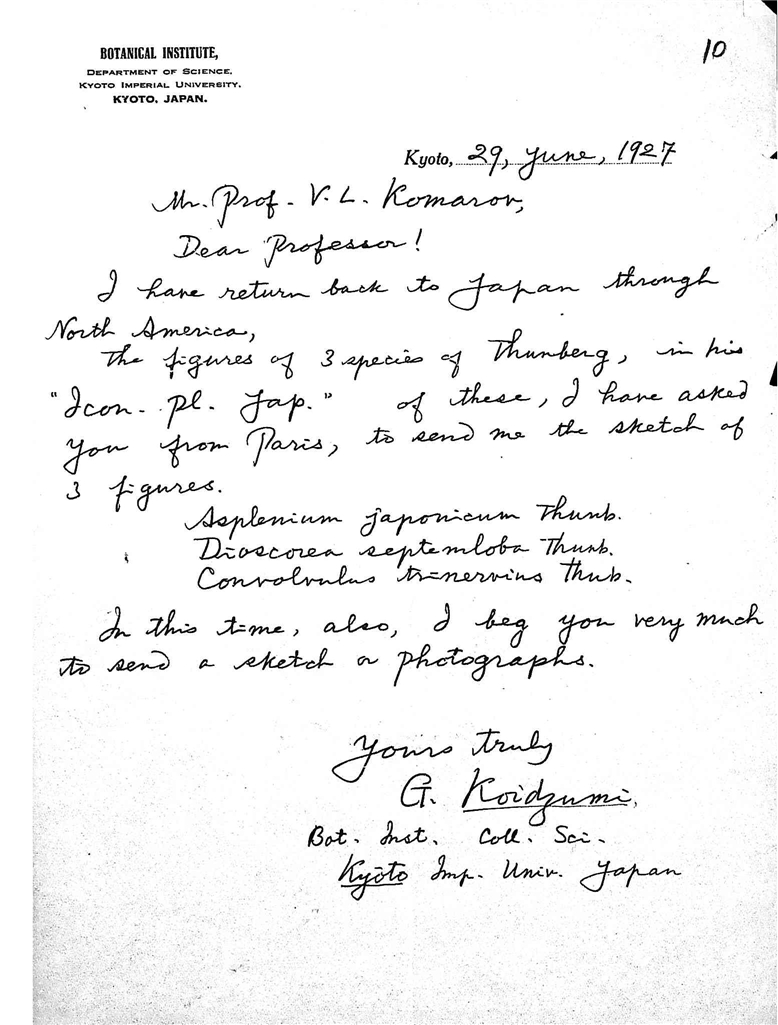 10
BOTANICAL INSTITUTE,
DEPARTMENT OF SCIENCE,
KYOTO IMPERIAL UNIVERSITY,
KYOTO, JAPAN.
Kyoto, 29, June, 1927
Mr. Prof. V. L. Komarov,
Dear Professor!
I have return back to Japan through
North America,
The figures of 3 species of Thunberg, in his
"Icon. pl. Jap." of these, I have asked
you from Paris, to send me the sketch of
3 figures.
Asplenium japonicum Thunb.
Dioscorea septemloba Thunb.
Convolvulus trinervius Thub.
In this time, also, I beg you very much
to send a sketch or photographs.
Yours truly
G. Koidzumi,
Bot. Inst. Coll. Sci.
Kyōto Imp. Univ. Japan